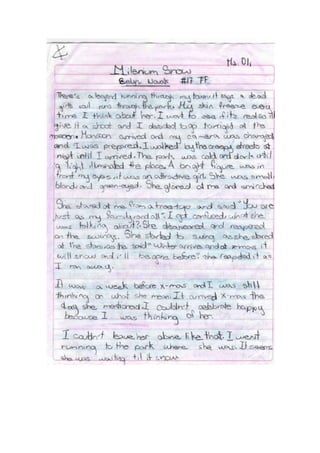 Ms. Oli
Milenium Snow
Belyn Novok #17 7F
There's a legend running through my town it says a dead
girls soul runs through the park. My skin freeze every
time I think about her. I want to see if its real so I'll
give it a shoot and I decided to go tonight at the
park. Mansion arrived and my camera was charged
and I was prepared. I walked by the creepy streets at
night until I arrived. The park was cold and dark until
a light iluminated the place. A on aft figure was in
front my eyes it was an attractive girl. She was small
blond and green-eyed. She glared at me and smirched
She stared at me from a tree top and said "You are
just as my family and all". I got confused what she
was talking about? She disappeared and reapered
on the swings. She started to swing as she stared
at the stars as she said "Winter arrives and at x-mas it
will snow and i'll be gone before" she repeted it as
I ran away.
It was a week before x-mas and I was still
thinking on what she mean. It arrived X-mas the
day she mentioned I couldn't celebrate happy
because I was thinking of her.
I couldn't leave her alone like that. I went
running to the park where she was. It seems
she was waiting til it snow